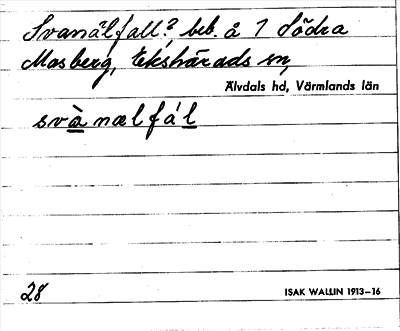 Svanälfall?, beb. å 1 Södra
Masberg, Ekshärads sn,
Älvdals hd, Värmlands län
svànælfál
28
ISAK WALLIN 1913–16